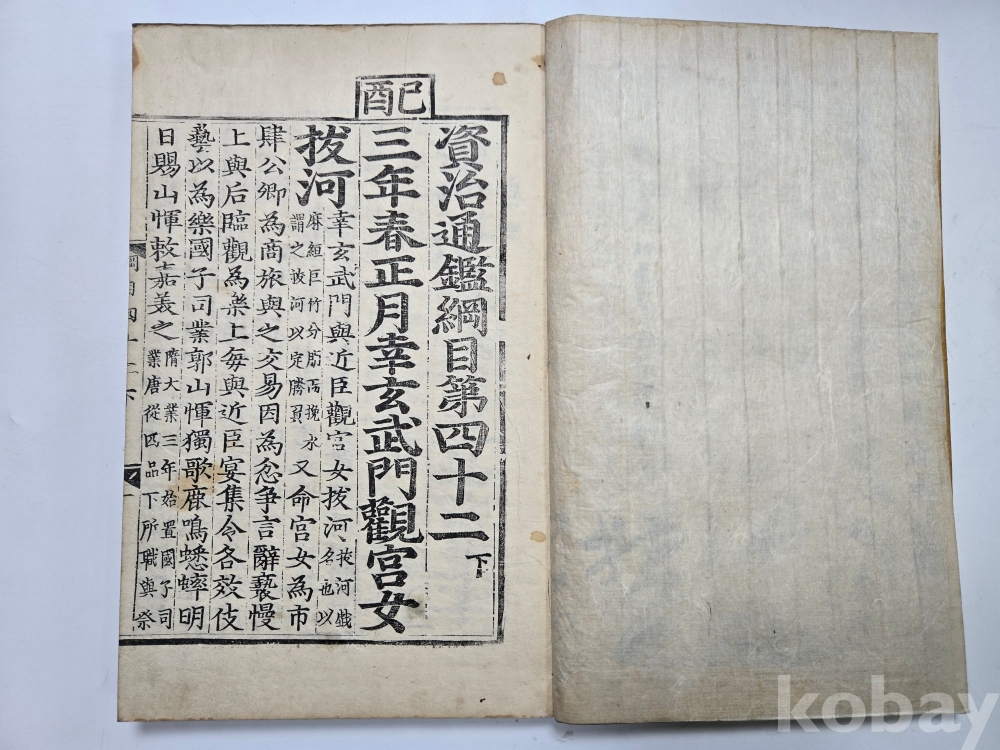 己酉
資治通鑑綱目第四十二 下
三年春正月幸玄武門觀宮女
拔河
幸玄武門與近臣觀宮女拔河
拔河戲
名也以
麻絙巨竹分朋而挽水
謂之拔河以定勝負
又命宮女為市
肆公卿為商旅與之交易因為忿爭言辭褻慢
上與后臨觀為樂上每與近臣宴集令各效伎
藝以為樂國子司業郭山惲獨歌鹿鳴蟋蟀明
日賜山惲敕嘉美之
隋大業三年始置國子司
業唐從四品下所職與祭
綱目四十二下
kobay